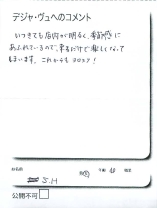 デジャ・ヴュへのコメント
いつきても店内が明るく、季節感に
あふれているので、来るだけで楽しくなって
しまいます。これからも ヨロシク！
S.H
公開不可